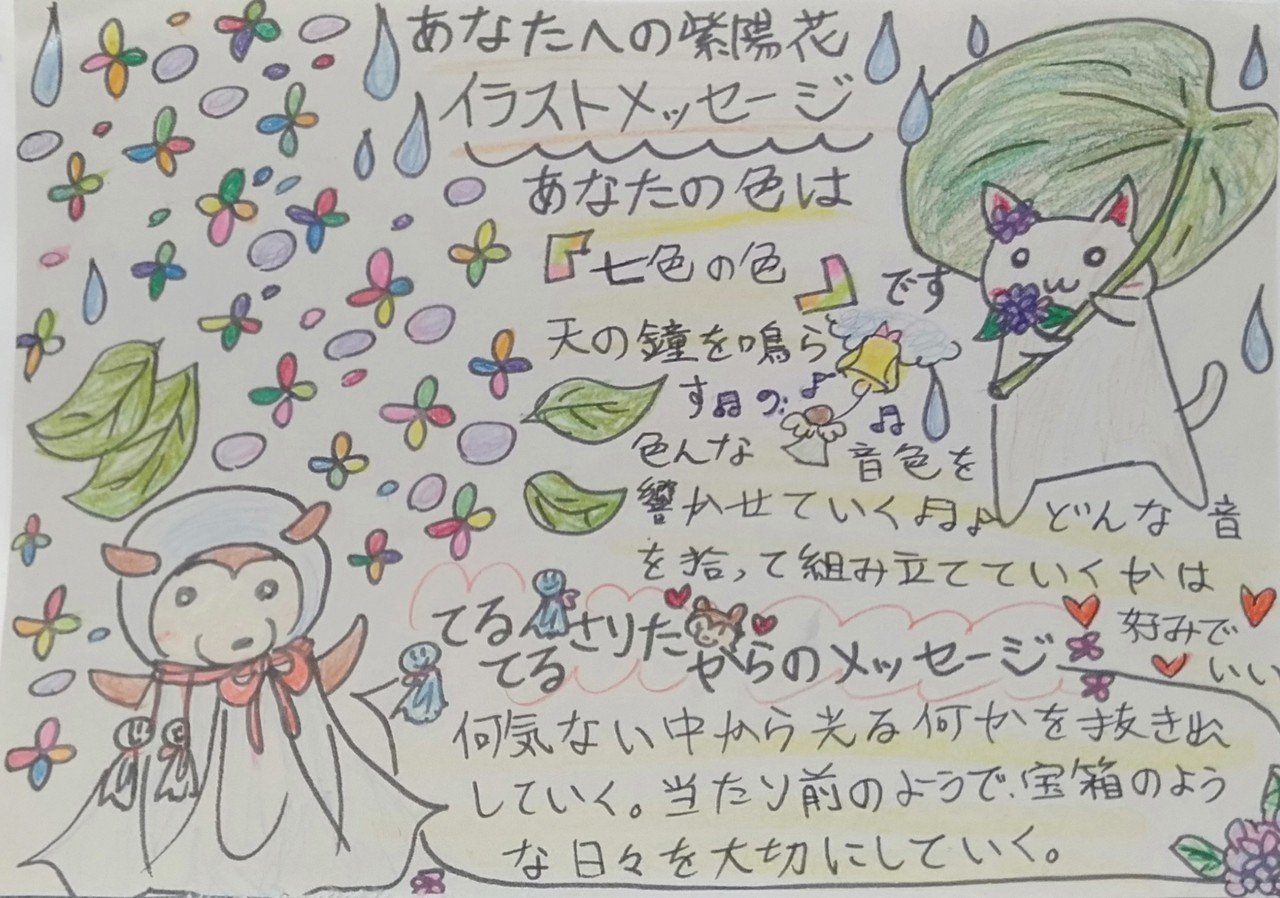 あなたへの紫陽花
イラストメッセージ
あなたの色は
『七色の色』です
天の鐘を鳴ら
す♫の♪
色んな音色を
♫
響かせていく♫♪どんな音
を拾って組み立てていくかは
好みで
いい
てるてるさりたからのメッセージ
何気ない中から光る何かを抜き出
していく。当たり前のようで、宝箱のよう
な日々を大切にしていく。